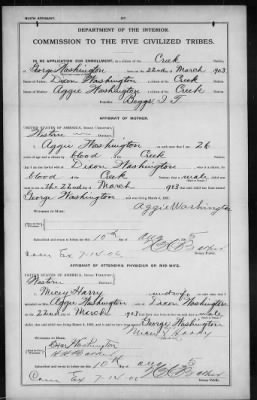 BIRTH AFFIDAVIT.
DEPARTMENT OF THE INTERIOR.
COMMISSION TO THE FIVE CIVILIZED TRIBES.
IN RE APPLICATION FOR ENROLLMENT, as a citizen of the Creek Nation,
of George Washington, born on the 22nd day of March, 1903
Name of Father: Dixon Washington a citizen of the Creek Nation.
Name of Mother: Aggie Washington a citizen of the Creek Nation.
Postoffice Beggs I T
AFFIDAVIT OF MOTHER.
UNITED STATES OF AMERICA, Indian Territory,
Western
I, Aggie Washington, on oath state that I am 26
years of age and a citizen by blood, of the Creek Nation;
that I am the lawful wife of Dixon Washington, who is a citizen, by
blood of the Creek Nation; that a male child was
born to me on the 22nd day of March, 1903
George Washington, and was living March 4, 1905.
Aggie Washington
WITNESSES TO MARK:
Subscribed and sworn to before me this 10th day of
Com Ex 7-14-06
Notary Public.
AFFIDAVIT OF ATTENDING PHYSICIAN OR MID-WIFE.
UNITED STATES OF AMERICA, Indian Territory,
Western
I, Micey Harry, a midwife, on oath state that I
attended on Mrs. Aggie Washington, wife of Dixon Washington
on the 22nd day of March, 1903; that there was born to her on said date a male
child; that said child was living March 4, 1905, and is said to have been named George Washington
WITNESSES TO MARK:
Dixon Washington
Subscribed and sworn to before me this 10th day of
Com Ex 7-14-06
Notary Public.